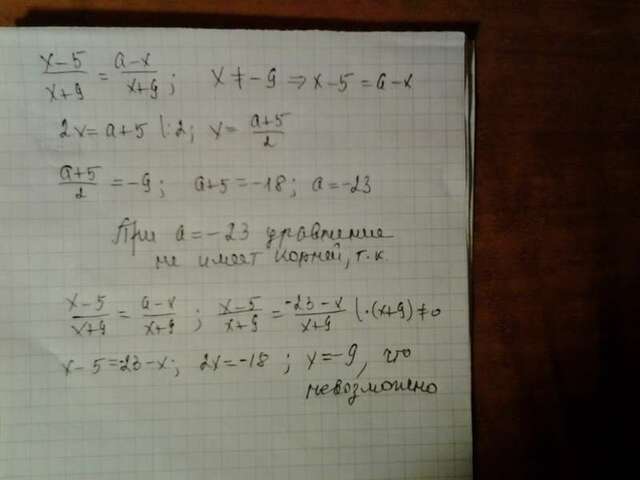 x-5/x+9 = a-x/x+9 ; x ≠ -9 ⇒ x-5 = a-x
2x = a+5 |:2 ; x = a+5/2
a+5/2 = -9 ; a+5 = -18 ; a = -23
При a = -23 уравнение
не имеет корней, т.к.
x-5/x+9 = a-x/x+9 ; x-5/x+9 = -23-x/x+9 |·(x+9) ≠ 0
x-5 = -23-x ; 2x = -18 ; x = -9, что
невозможно